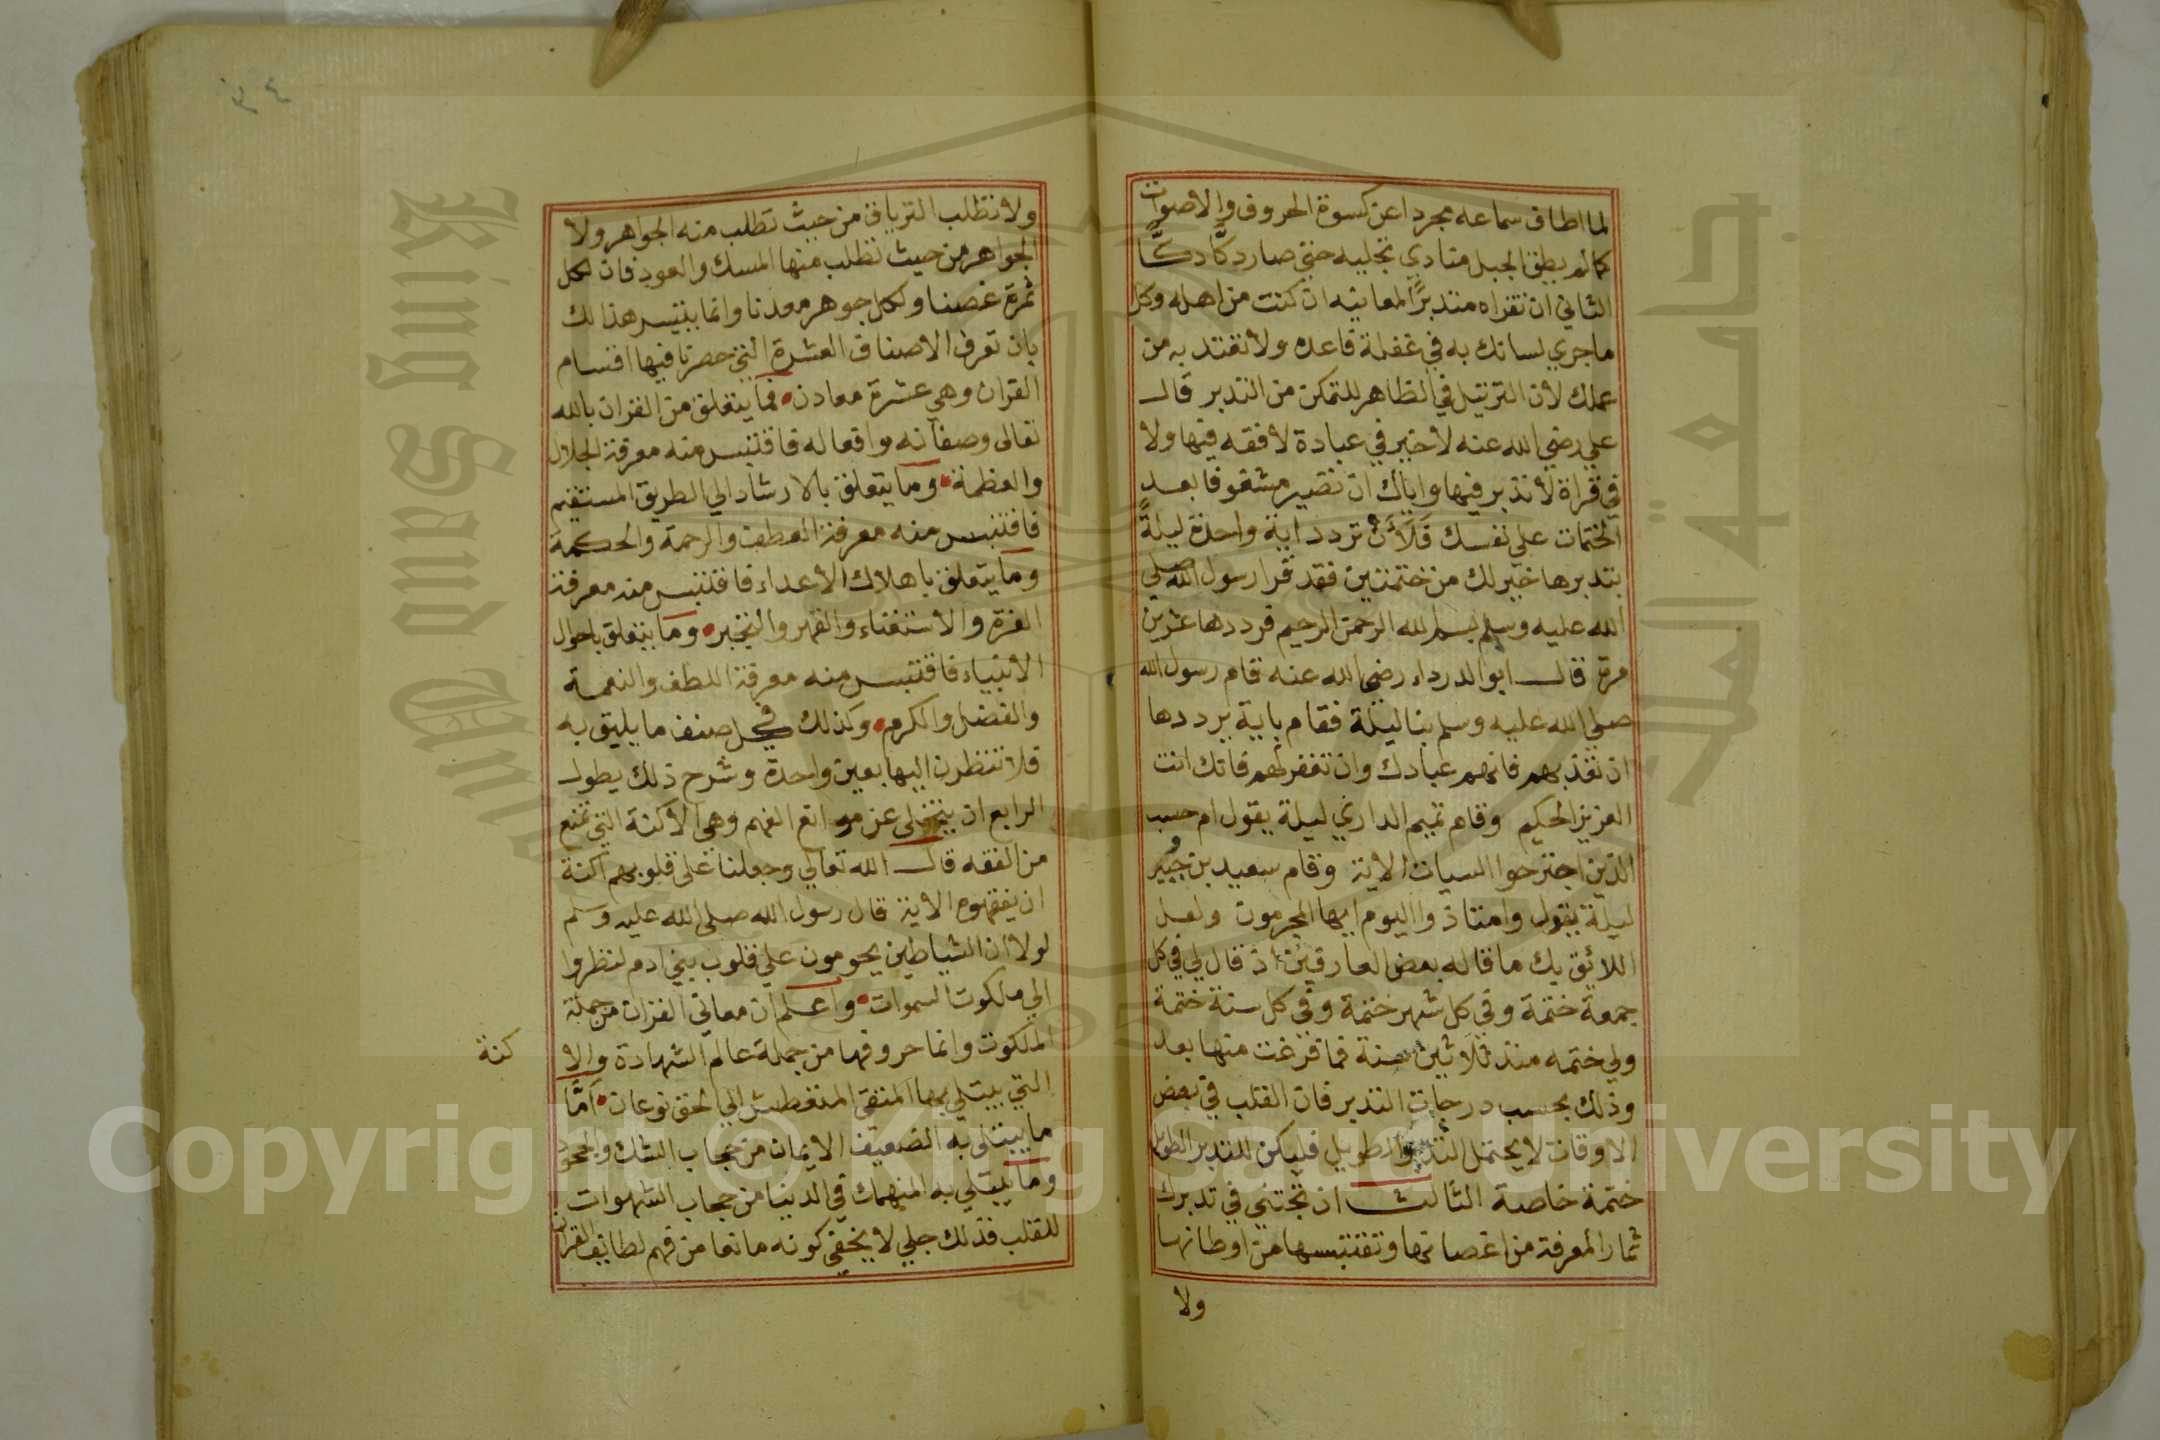 لما اطاق سماعه مجردا عن كسوة الحروف والاصوات
كما لم يطق الجبل متادي تجليه حتي صار دكًّا دكًّا
الثاني ان تقراه متدبرًا لمعانيه ان كنت من اهله وكل
ما جري لسانك به في غفلة فاعده ولا تعتد به من
عملك لان الترتيل في الظاهر للتمكن من التدبر قال
علي رضي الله عنه لا خير في عبادة لا فقه فيها ولا
في قراة لا تدبر فيها واياك ان تصير مشغوفا بعدد
الختمات علي نفسك فلأن تردد اية واحدة ليلةً
تتدبرها خير لك من ختمتين فقد قرا رسول الله صلي
الله عليه وسلم بسم الله الرحمن الرحيم فرددها عشرين
مرة قال ابو الدرداء رضي الله عنه قام رسول الله
صلي الله عليه وسلم بنا ليلة فقام باية يرددها
ان تعذبهم فانهم عبادك وان تغفر لهم فانك انت
العزيز الحكيم وقام تميم الداري ليلة يقول ام حسب
الذين اجترحوا السيات الاية وقام سعيد بن جبير
ليلة يقول وامتاذوا اليوم ايها المجرمون ولعل
اللائق بك ما قاله بعض العارفين اذ قال لي في كل
جمعة ختمة وفي كل شهر ختمة وفي كل سنة ختمة
ولي ختمه منذ ثلاثين سنة فما فرغت منها بعد
وذلك بحسب درجات التدبر فان القلب في بعض
الاوقات لا يحتمل التدبر الطويل فليكن للتدبر الطويل
ختمة خاصة الثالث ان تجتني في تدبرك
ثمار المعرفة من اغصانها وتقتبسها من اوطانها
ولا
٣٤
ولا تطلب الترياق من حيث تطلب منه الجواهر ولا
الجواهر من حيث تطلب منها المسك والعود فان لكل
ثمرة غصنا ولكل جوهر معدنا وانما يتيسر هذا لك
بان تعرف الاصناف العشرة التي حصرنا فيها اقسام
القران وهي عشرة معادن فما يتعلق من القران بالله
تعالى وصفاته وافعاله فاقتبس منه معرفة الجلال
والعظمة وما يتعلق بالارشاد الي الطريق المستقيم
فاقتبس منه معرفة العطف والرحمة والحكمة
وما يتعلق باهلاك الاعداء فاقتبس منه معرفة
العزة والاستغناء والقهر والتجبر وما يتعلق باحوال
الانبياء فاقتبس منه معرفة اللطف والنعمة
والفضل والكرم وكذلك في كل صنف ما يليق به
فلا تنظرن اليها بعين واحدة وشرح ذلك يطول
الرابع ان يتخلى عن موانع الفهم وهي الاكنة التي تمنع
من الفقه قال الله تعالي وجعلنا على قلوبهم اكنة
ان يفقهوه الاية قال رسول الله صلى الله عليه وسلم
لولا ان الشياطين يحومون علي قلوب بني ادم لنظروا
الي ملكوت السموات واعلم ان معاني القران من جملة
الملكوت وانما حروفها من جملة عالم الشهادة والا
كنة
التي يبتلي بها المتقي المتعطش الي الحق نوعان امّا
ما يبتلى به الضعيف الايمان من حجاب الشك والجحود
وما يبتلي به المنهمك في الدنيا من حجاب الشهوات
للقلب فذلك جلي لا يخفي كونه مانعا من فهم لطايف القران
جامعة الملك سعود
King Saud University
1957
Copyright © King Saud University